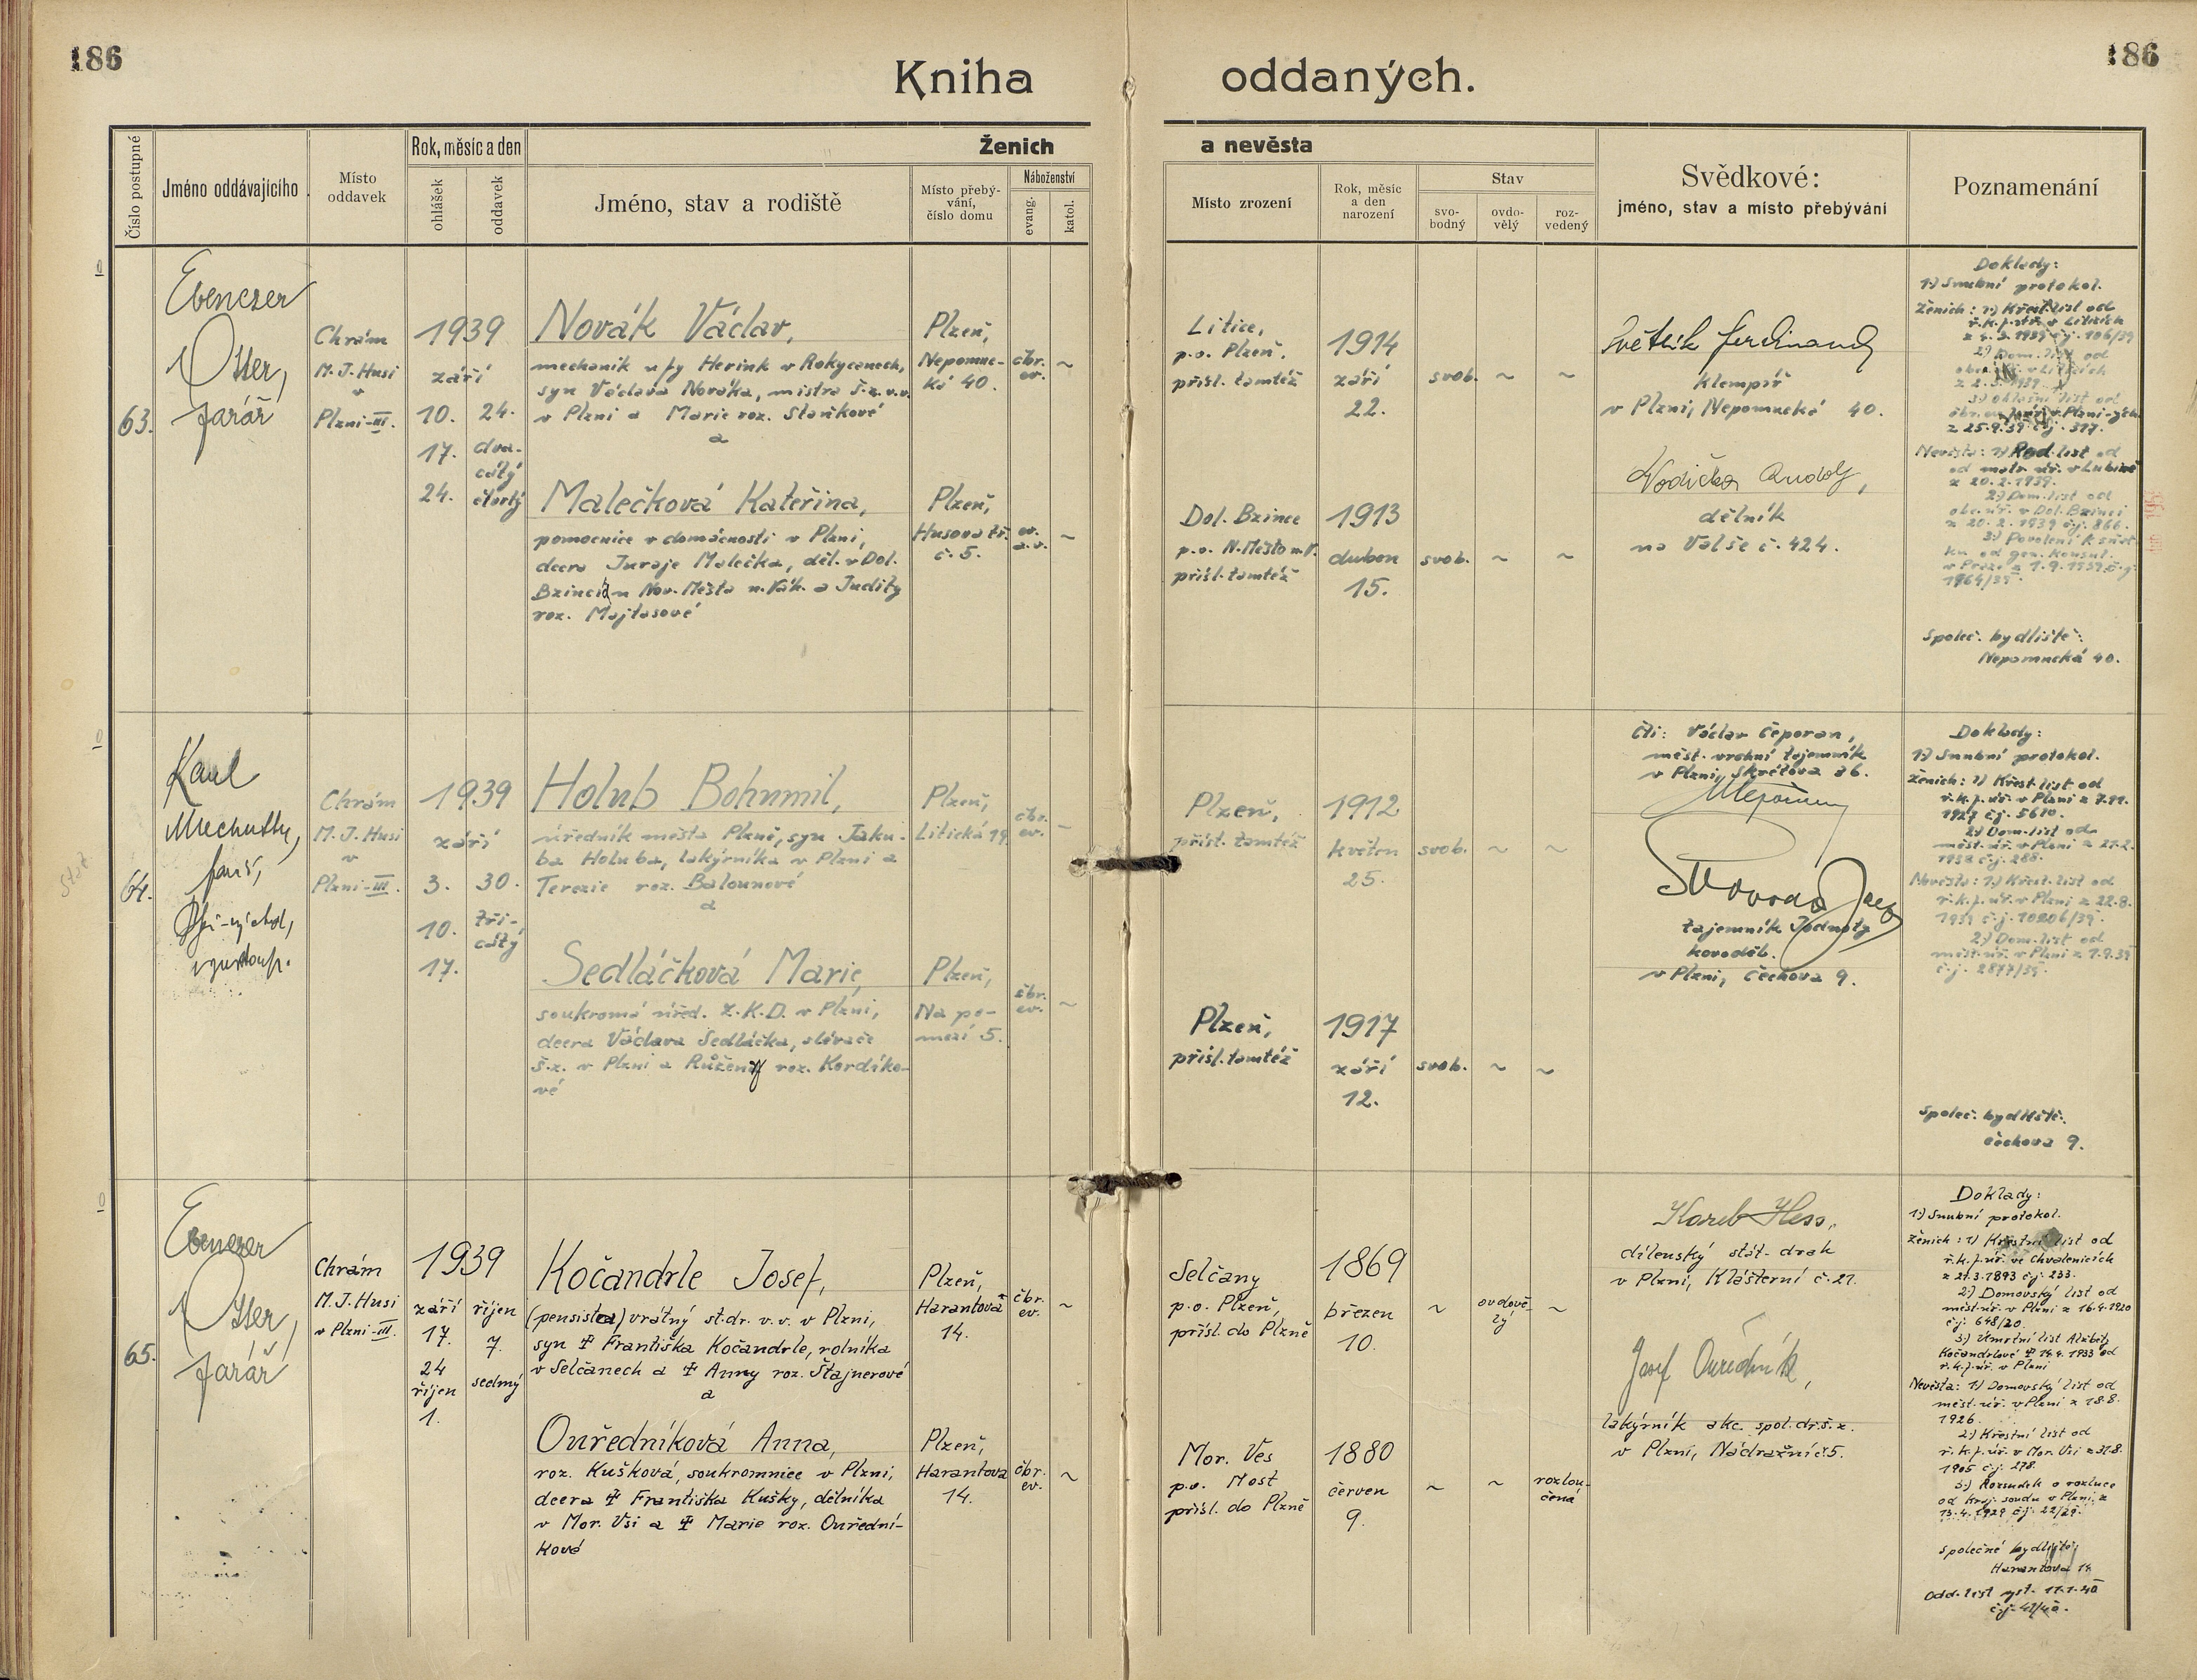 186
186
Kniha oddaných.
Číslo postupné
Jméno oddávajícího
Místo
oddavek
Rok, měsíc a den
ohlášek
oddavek
Ženich
a nevěsta
Jméno, stav a rodiště
Místo přebý-
vání,
číslo domu
Náboženství
evang.
katol.
Místo zrození
Rok, měsíc
a den
narození
Stav
svo-
bodný
ovdo-
vělý
roz-
vedený
Svědkové:
jméno, stav a místo přebývání
Poznamenání
63.
Ebenezer
Otter,
farář
Chrám
M. J. Husi
v
Plzni-III.
1939
září
10. 24.
17. dva-
cátý
24. čtvrtý
Novák Václav,
mechanik u fy Herink v Rokycanech,
syn Václava Nováka, mistra š.z.v.v.
v Plzni a Marie roz. Staňkové
a
Malečková Kateřina,
pomocnice v domácnosti v Plzni,
dcera Juraje Malečka, děl. v Dol.
Bzinci u Nov. Města n. Váh. a Judity
roz. Majtasové
Plzeň,
Nepomuc-
ká 40.
čbr.
ev.
~
Plzeň,
Husova tř.
č. 5.
ev.
a.v.
~
Litice,
p.o. Plzeň.
přísl. tamtéž
1914
září
22.
svob. ~ ~
Dol. Bzince
p.o. N. Město n.V.
přísl. tamtéž
1913
duben
15.
svob. ~ ~
Světlík Ferdinand
klempíř
v Plzni, Nepomucká 40.
Vodička Rudolf,
dělník
na Valše č. 424.
Doklady:
1.) Snubní protokol.
Ženich: 1.) Křest. list od
ř.k.f.úř. v Liticích
2.) Dom. list od
z 2.3.1939.
3.) Ohlašní list od
z 25.9.39 č.j. 317.
Nevěsta: 1.) Rod. list od
od matr. úř. v Lubině
z 20.2.1939.
2.) Dom. list od
obec. úř. v Dol. Bzinci
z 20.2.1939 č.j. 866.
3.) Povolení k sňat
ku od gen. konsul.
v Praze z 1.9.1939 č.j.
1964/39.
Společ. bydliště:
Nepomucká 40.
64.
Chrám
M. J. Husi
v
Plzni-III.
1939
září
3. 30.
10. tři-
cátý
17.
Holub Bohumil,
úředník města Plzně, syn Jaku-
ba Holuba, lakýrníka v Plzni a
Terezie roz. Balounové
a
Sedláčková Marie,
soukromá úřed. Z.K.D. v Plzni,
dcera Václava Sedláčka, slévače
š.z. v Plzni a Růženy roz. Kordíko-
vé
Plzeň,
Litická 19.
čbr.
ev.
~
Plzeň,
Na po-
mezí 5.
čbr.
ev.
~
Plzeň,
přísl. tamtéž
1912
květen
25.
svob. ~ ~
Plzeň,
přísl. tamtéž
1917
září
12.
svob. ~ ~
čti: Václav Čeporan,
měst. vrchní tajemník
v Plzni, Skrétova 36.
Svoboda
tajemník Jednoty
kovoděl.
v Plzni, Čechova 9.
Doklady:
1.) Snubní protokol.
Ženich: 1.) Křest. list od
ř.k.f.úř. v Plzni z 7.11.
2.) Dom. list od
měst. úř. v Plzni z 21.2.
1938 č.j. 288.
Nevěsta: 1.) Křest. list od
ř.k.f.úř. v Plzni z 22.8.
1939 č.j. 10206/39.
2.) Dom. list od
měst. úř. v Plzni z 1.9.39
č.j. 2877/39.
Společ. bydliště:
Čechova 9.
65.
Ebenezer
Otter,
farář
Chrám
M. J. Husi
v Plzni-III.
1939
září říjen
17. 7.
24
říjen sedmý
1.
Kočandrle Josef,
(pensista) vrátný st. dr. v.v. v Plzni,
syn ✝ Františka Kočandrle, rolníka
v Selčanech a ✝ Anny roz. Štajnerové
a
Ouředníková Anna,
roz. Kušková, soukromnice v Plzni,
dcera ✝ Františka Kušky, dělníka
v Mor. Vsi a ✝ Marie roz. Ouřední-
kové
Plzeň,
Harantova
14.
čbr.
ev.
~
Plzeň,
Harantova
14.
čbr.
ev.
~
Selčany
p.o. Plzeň,
přísl. do Plzně
1869
březen
10.
~ ovdově-
lý ~
Mor. Ves
p.o. Most
přísl. do Plzně
1880
červen
9.
~ ~ rozlou-
čená
Karel Hess,
dílenský stát. drah
v Plzni, Klášterní č. 21.
Josef Ouředník,
lakýrník akc. spol. dř. š. z.
v Plzni, Nádražní č. 5.
Doklady:
1.) Snubní protokol.
Ženich: 1.) Křestní list od
ř.k.f.úř. ve Chválenicích
z 21.3.1893 č.j. 233.
2.) Domovský list od
měst. úř. v Plzni z 16.4.1920
č.j. 648/20.
3.) Úmrtní list Alžběty
Kočandrlové ✝ 14.4.1933 od
ř.k.f.úř. v Plzni
Nevěsta: 1.) Domovský list od
měst. úř. v Plzni z 18.8.
1926.
2.) Křestní list od
ř.k.f.úř. v Mor. Vsi z 31.8.
1905 č.j. 278.
3.) Rozsudek o rozluce
od kraj. soudu v Plzni z
13.4.1929 č.j. 22/29.
Společné bydliště:
Harantova 14
Odd. list vyst. 11.1.40
č.j. 41/40.